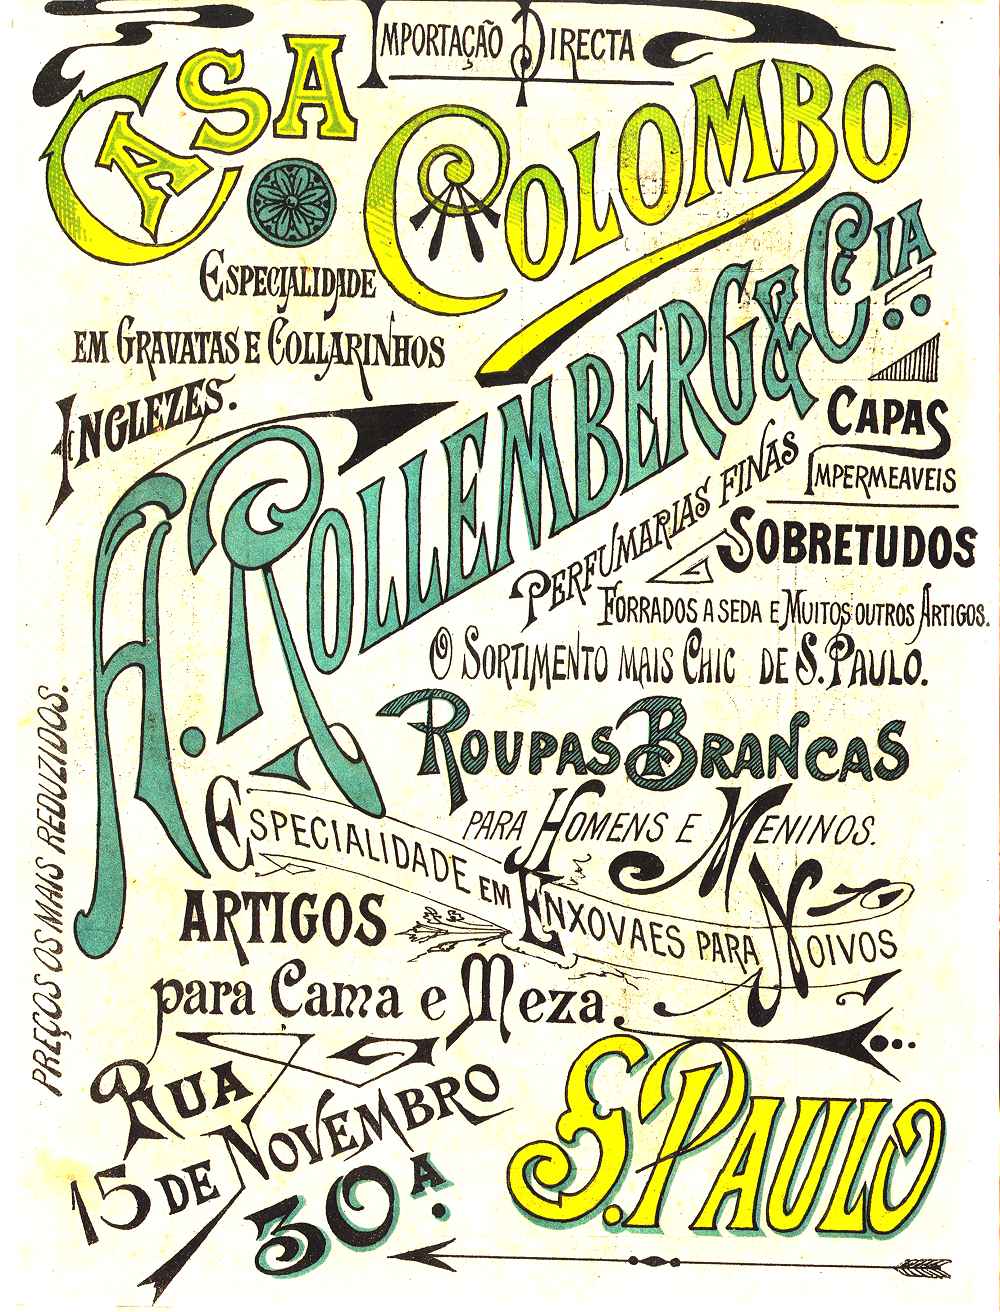 IMPORTAÇÃO DIRECTA
CASA COLOMBO
ESPECIALIDADE
EM GRAVATAS E COLLARINHOS
INGLEZES.
A. ROLLEMBERG & CIA
CAPAS
IMPERMEAVEIS
PERFUMARIAS FINAS
SOBRETUDOS
FORRADOS A SEDA E MUITOS OUTROS ARTIGOS.
O SORTIMENTO MAIS CHIC DE S. PAULO.
ROUPAS BRANCAS
PARA HOMENS E MENINOS.
ESPECIALIDADE EM ENXOVAES PARA NOIVOS
ARTIGOS
para Cama e Meza.
PREÇOS OS MAIS REDUZIDOS.
RUA
15 DE NOVEMBRO
30 A.
S. PAULO